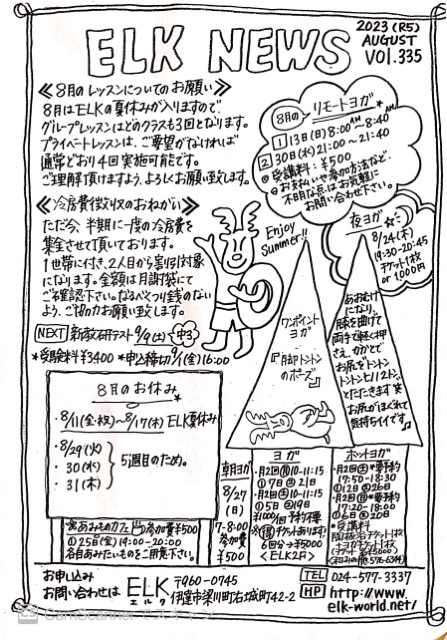 ELK NEWS
2023 (R5)
AUGUST
VOL.335
≪8月のレッスンについてのお願い≫
8月はELKの夏休みが入りますので
グループレッスンはどのクラスも3回となります。
プライベートレッスンは、ご要望がなければ
通常どおり4回実施可能です。
ご理解頂けますよう、よろしくお願い致します。
≪冷房費徴収のおねがい≫
ただ今、半期に一度の冷房費を
集金させて頂いております。
1世帯に付き、2人目から割引対象
になります。金額は月謝袋にて
ご確認下さい。なるべくつり銭のない
よう、ご協力お願い致します。
NEXT 新教研テスト 9/9(土) 中3
*受験料¥3400 *申込締切9/1(金)16:00
8月の リモートヨガ
1 13(日) 8:00AM～8:40AM
2 30(水) 21:00～21:40
◎受講料:¥500
◎お支払いや参加方法など、
不明な点はお気軽に
お問い合わせ下さい。
夜ヨガ
8/24(木)
19:30-20:45
チケット1枚
or 1000円
Enjoy
Summer!!
ワンポイント
ヨガ
『脚トントン
のポーズ』
あおむけに
なり、
膝を曲げて
両手で軽く押
さえ、かかとで
お尻をトントン
トントンと112トン、
とたたきます
お尻がほぐれて
気持ちイイです
8月のお休み
・8/11(金・祝)～8/17(木) ELK夏休み
・8/29(火)
・30(水)
・31(木)
5週目のため。
あみものカフェ 参加費¥500
◎25(金) 19:00-20:00
各自あみたいものをご用意下さい。
朝ヨガ
8/27
(日)
7-8:00
参加費
¥500
ヨガ
・月2回 10-11:15
①7 ②21
・月2回 10-11:15
①5 ②19
チケットあります
6回分→¥5000
<ELK2F>
ホットヨガ
・月2回 *要予約
17:50-18:30
①12 ②26
・月2回 *要予約
17:20-18:00
①6 ②20
*受講料
お申し込み
お問い合わせは ELK
エルク
〒960-0745
伊達市梁川町右城町42-2
TEL 024-577-3337
HP http://www.
elk-world.net/
CS CamScanner